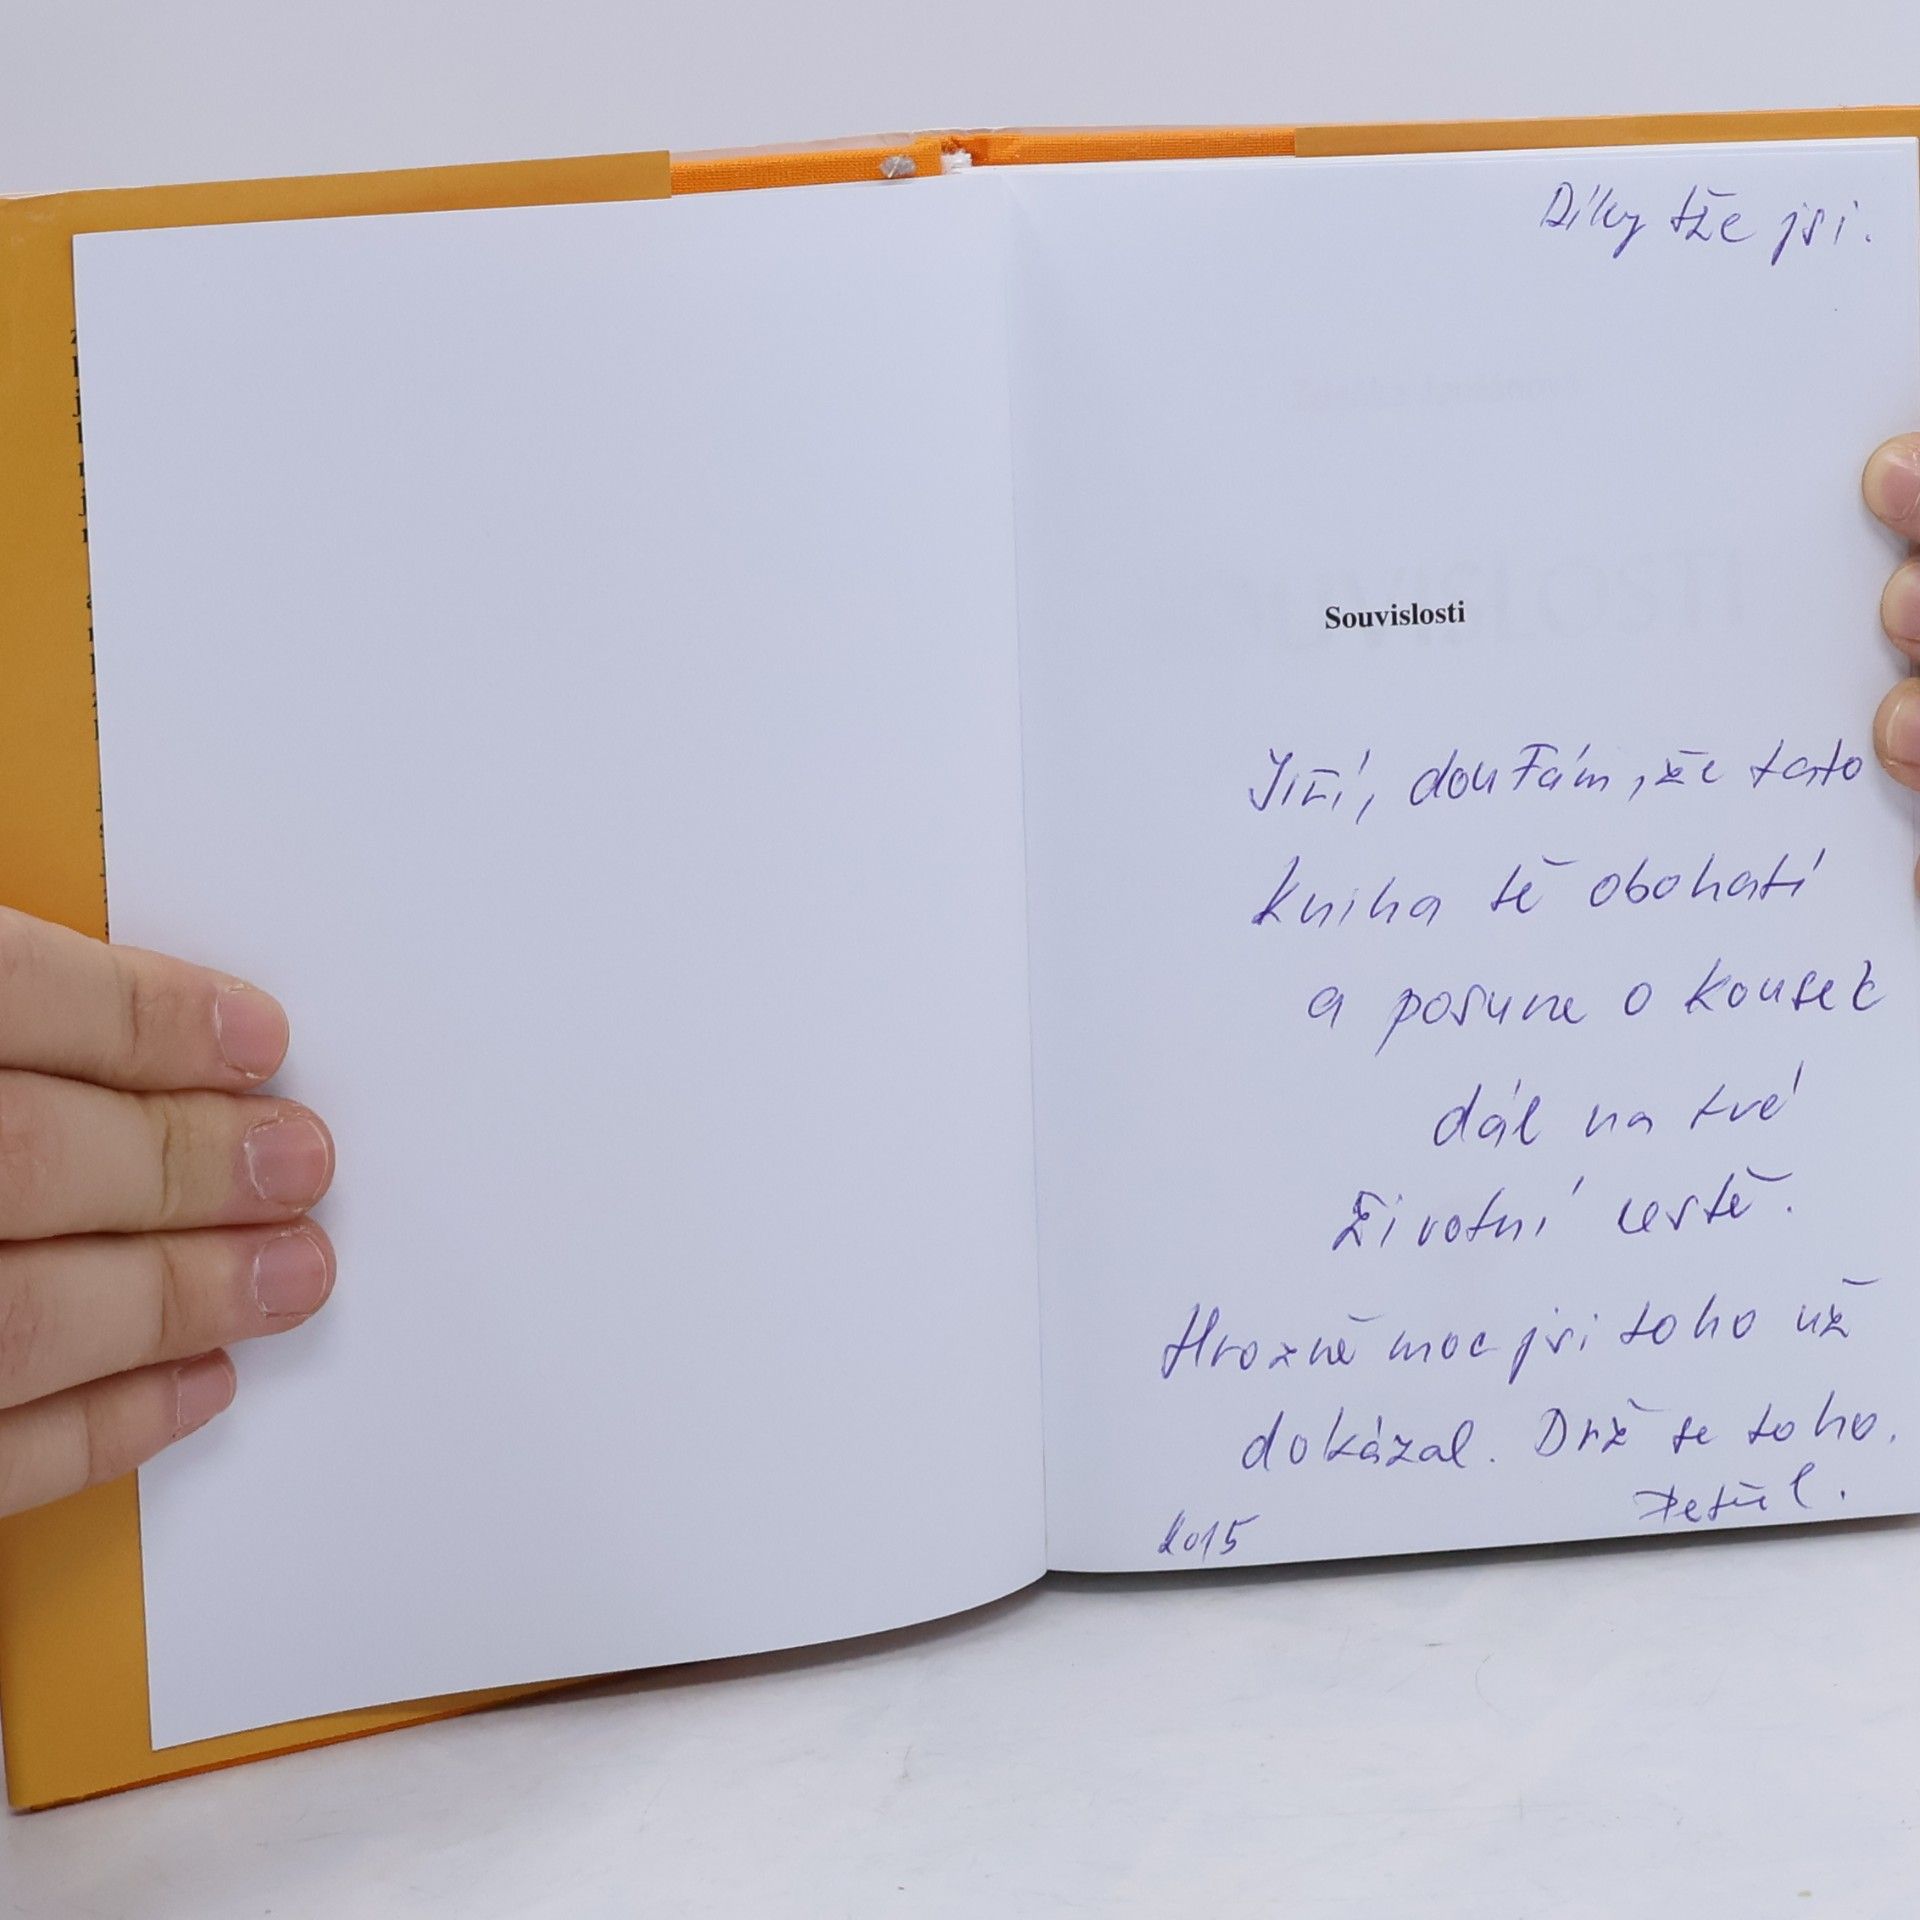 Díky tže jsi.
Souvislosti
Jiří, doufám, že tato
kniha tě obohatí
a posune o kousek
dál na tvé
životní cestě.
Hrozně moc jsi toho už
dokázal. Drž se toho.
Petül.
2015